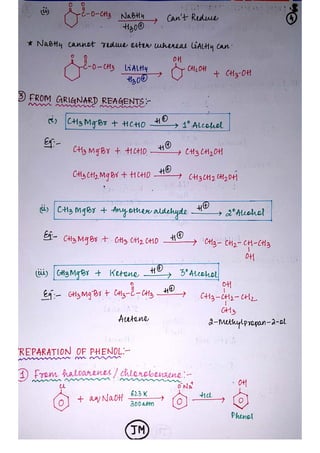 (ii) O O
C-O-CH3 NaBH4 H3O⊕ → Can't Reduce
* NaBH4 cannot reduce ester whereas LiAlH4 can.
O O OH
C-O-CH3 LiAlH4 H3O⊕ → CH2OH + CH3-OH
③ FROM GRIGNARD REAGENTS:-
(i) CH3MgBr + HCHO H⊕ → 1° Alcohol
Eg:- CH3MgBr + HCHO H⊕ → CH3CH2OH
CH3CH2MgBr + HCHO H⊕ → CH3CH2CH2OH
(ii) CH3MgBr + Any other aldehyde H⊕ → 2° Alcohol
Eg:- CH3MgBr + CH3CH2CHO H⊕ → CH3-CH2-CH-CH3
OH
(iii) CH3MgBr + Ketone H⊕ → 3° Alcohol
O OH
Eg:- CH3MgBr + CH3-C-CH3 H⊕ → CH3-CH2-CH2
CH3
Acetone 2-Methylpropan-2-ol
REPARATION OF PHENOL:-
① From haloarenes / chlorobenzene:-
Cl ONa OH
+ aq NaOH 623K 300atm → HCl →
Phenol
JM